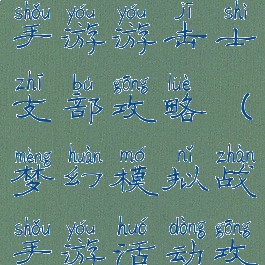 shǒu yóu yóu jī shì
手游游击士
zhī bù gōng lüè
支部攻略（
mèng huàn mó nǐ zhàn
梦幻模拟战
shǒu yóu huó dòng gōng
手游活动攻